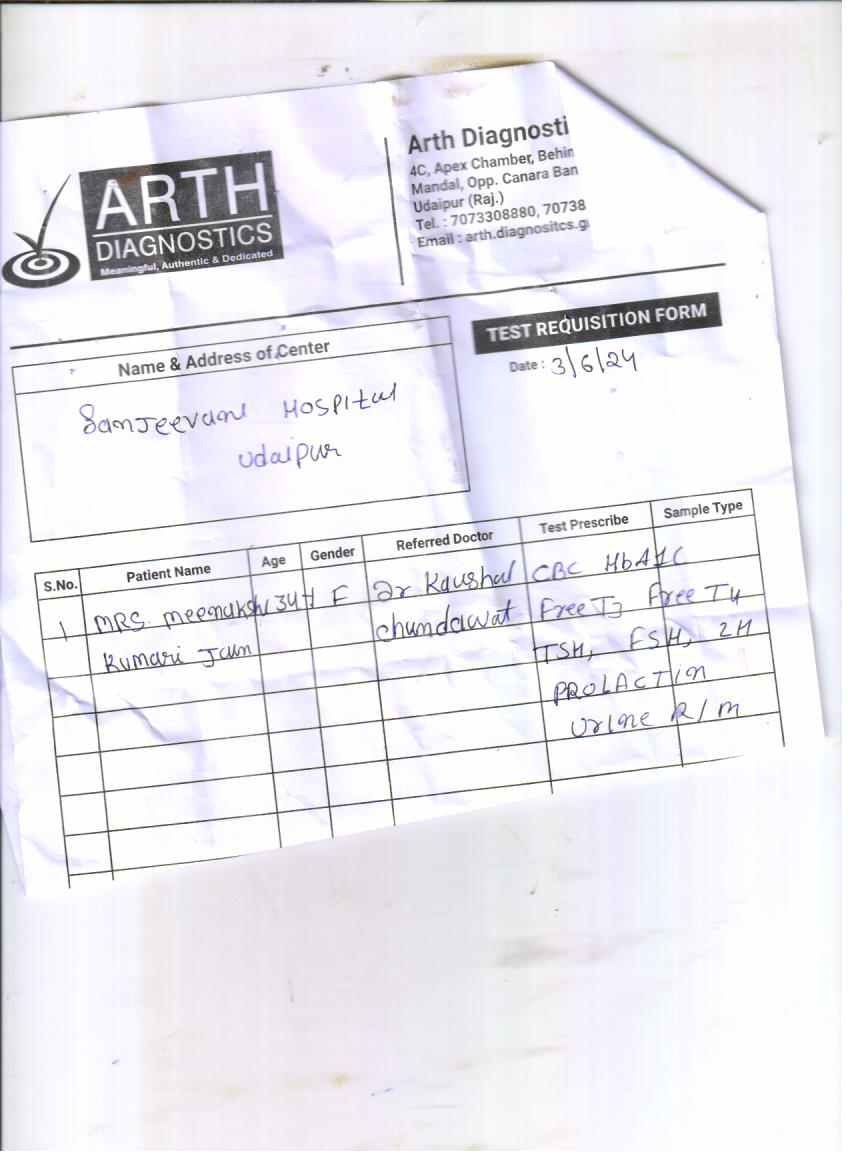 ARTH
DIAGNOSTICS
Meaningful, Authentic & Dedicated
Arth Diagnosti
4C, Apex Chamber, Behin
Mandal, Opp. Canara Ban
Udaipur (Raj.)
Tel. : 7073308880, 70738
Email : arth.diagnositcs.g
TEST REQUISITION FORM
Date : 3/6/24
Name & Address of Center
Sanjeevani Hospital
Udaipur
S.No. Patient Name Age Gender Referred Doctor Test Prescribe Sample Type
1 MRS. Meenakshi 34Y F Dr Kaushal CBC HbA1C
Kumari Jain chundawat Free T3 Free T4
TSH, FSH, LH
PROLACTION
Urine R/m